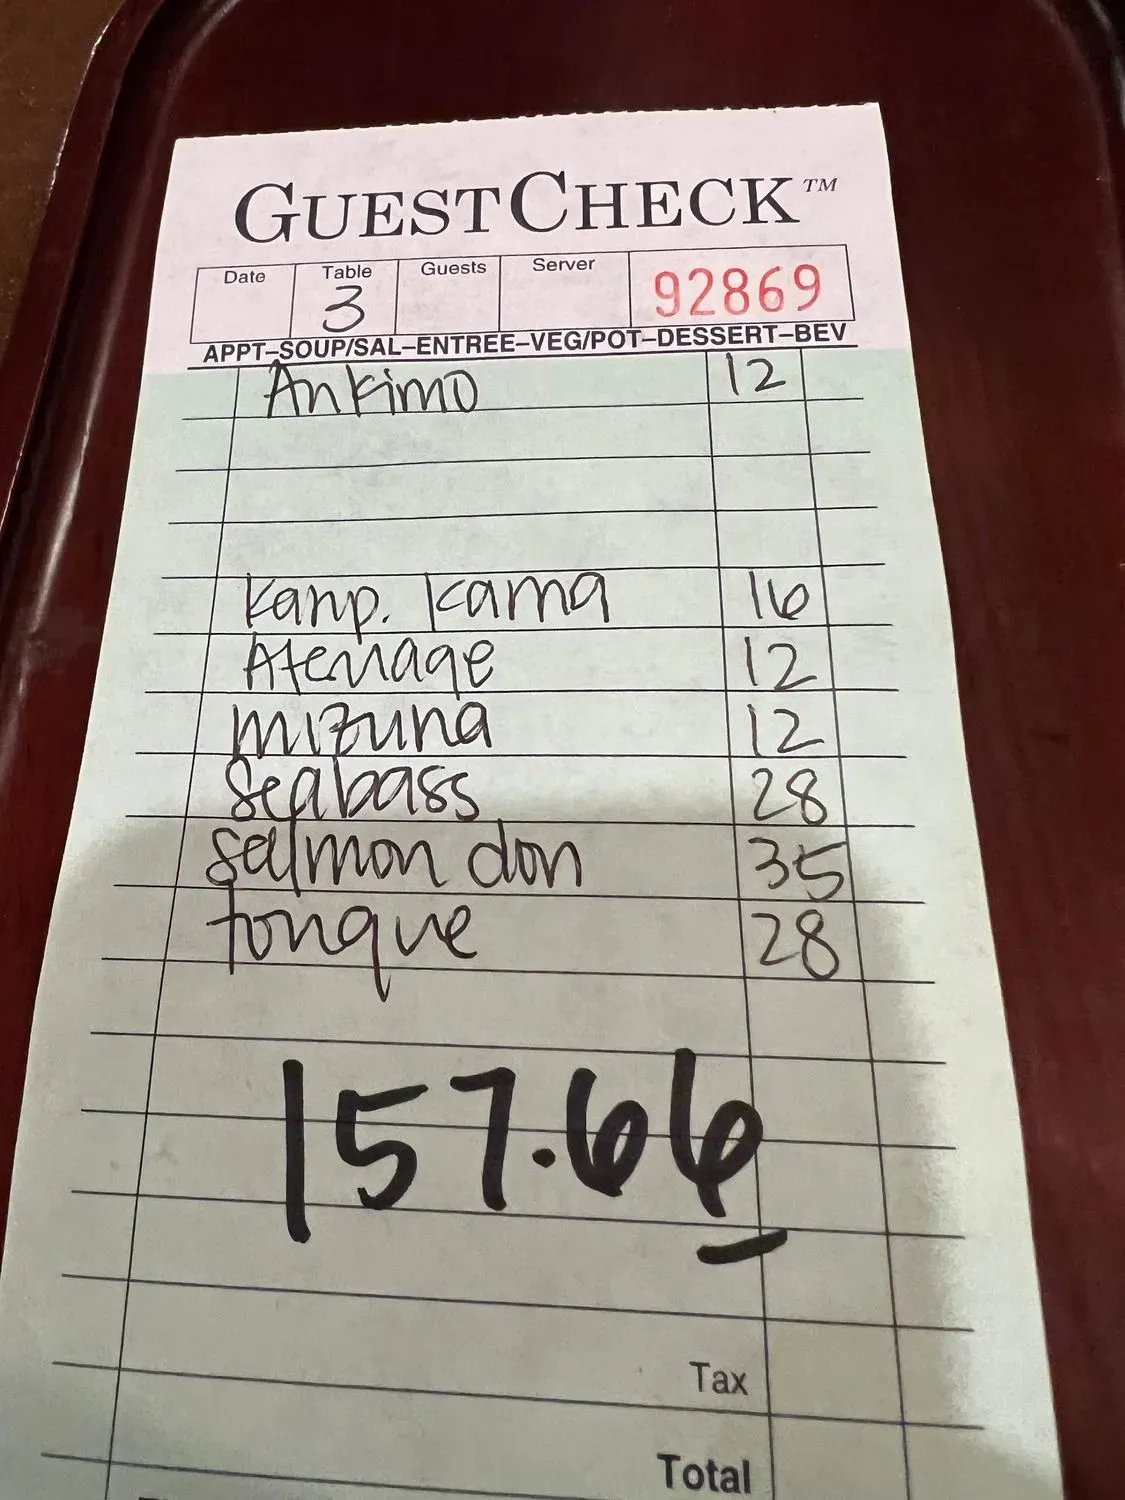 GUESTCHECK™
Date Table Guests Server
3 92869
APPT–SOUP/SAL–ENTREE–VEG/POT–DESSERT–BEV
Ankimo 12
Kanp. Kama 16
Atemage 12
mizuna 12
Seabass 28
Salmon don 35
tongue 28
157.66
Tax
Total